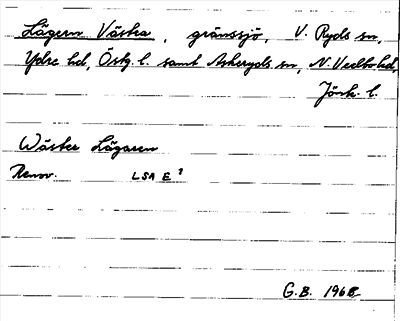 Lägern Västra, gränssjö, V. Ryds sn,
Ydre hd, Östg. l. samt Askeryds sn, N. Vedbo hd,
Jönk. l.
Wäster Lägaren
Renov. LSA E
G.B. 1968